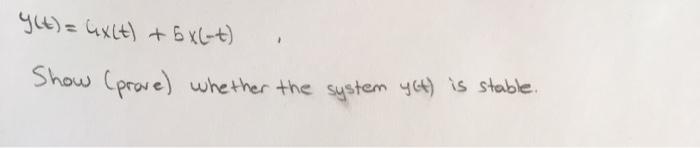 y(t) = 4x(t) + 5x(-t) ,
Show (prove) whether the system y(t) is stable.